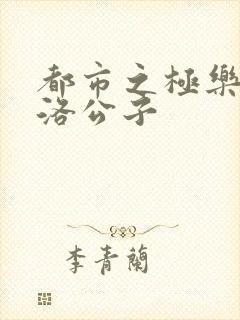 都市之極樂
洛公子
李青蘭